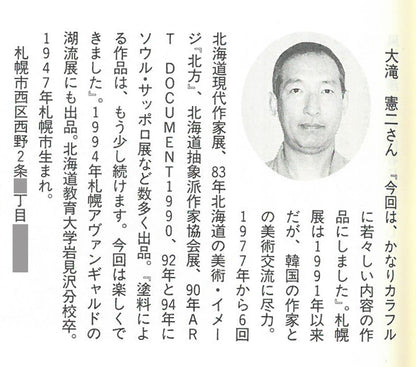 大滝 憲二さん 『今回は、かなりカラフル
に若々しい内容の作
品にしました』。札幌
展は1991年以来
だが、韓国の作家と
の美術交流に尽力。
1977年から6回
北海道現代作家展、83年北海道の美術・イメー
ジ『北方』、北海道抽象派作家協会展、90年AR
T DOCUMENT1990、92年と94年に
ソウル・サッポロ展など数多く出品。『塗料によ
る作品は、もう少し続けます。今回は楽しくで
きました』。1994年札幌アヴァンギャルドの
潮流展にも出品。北海道教育大学岩見沢分校卒。
1947年札幌市生まれ。
札幌市西区西野2条 丁目